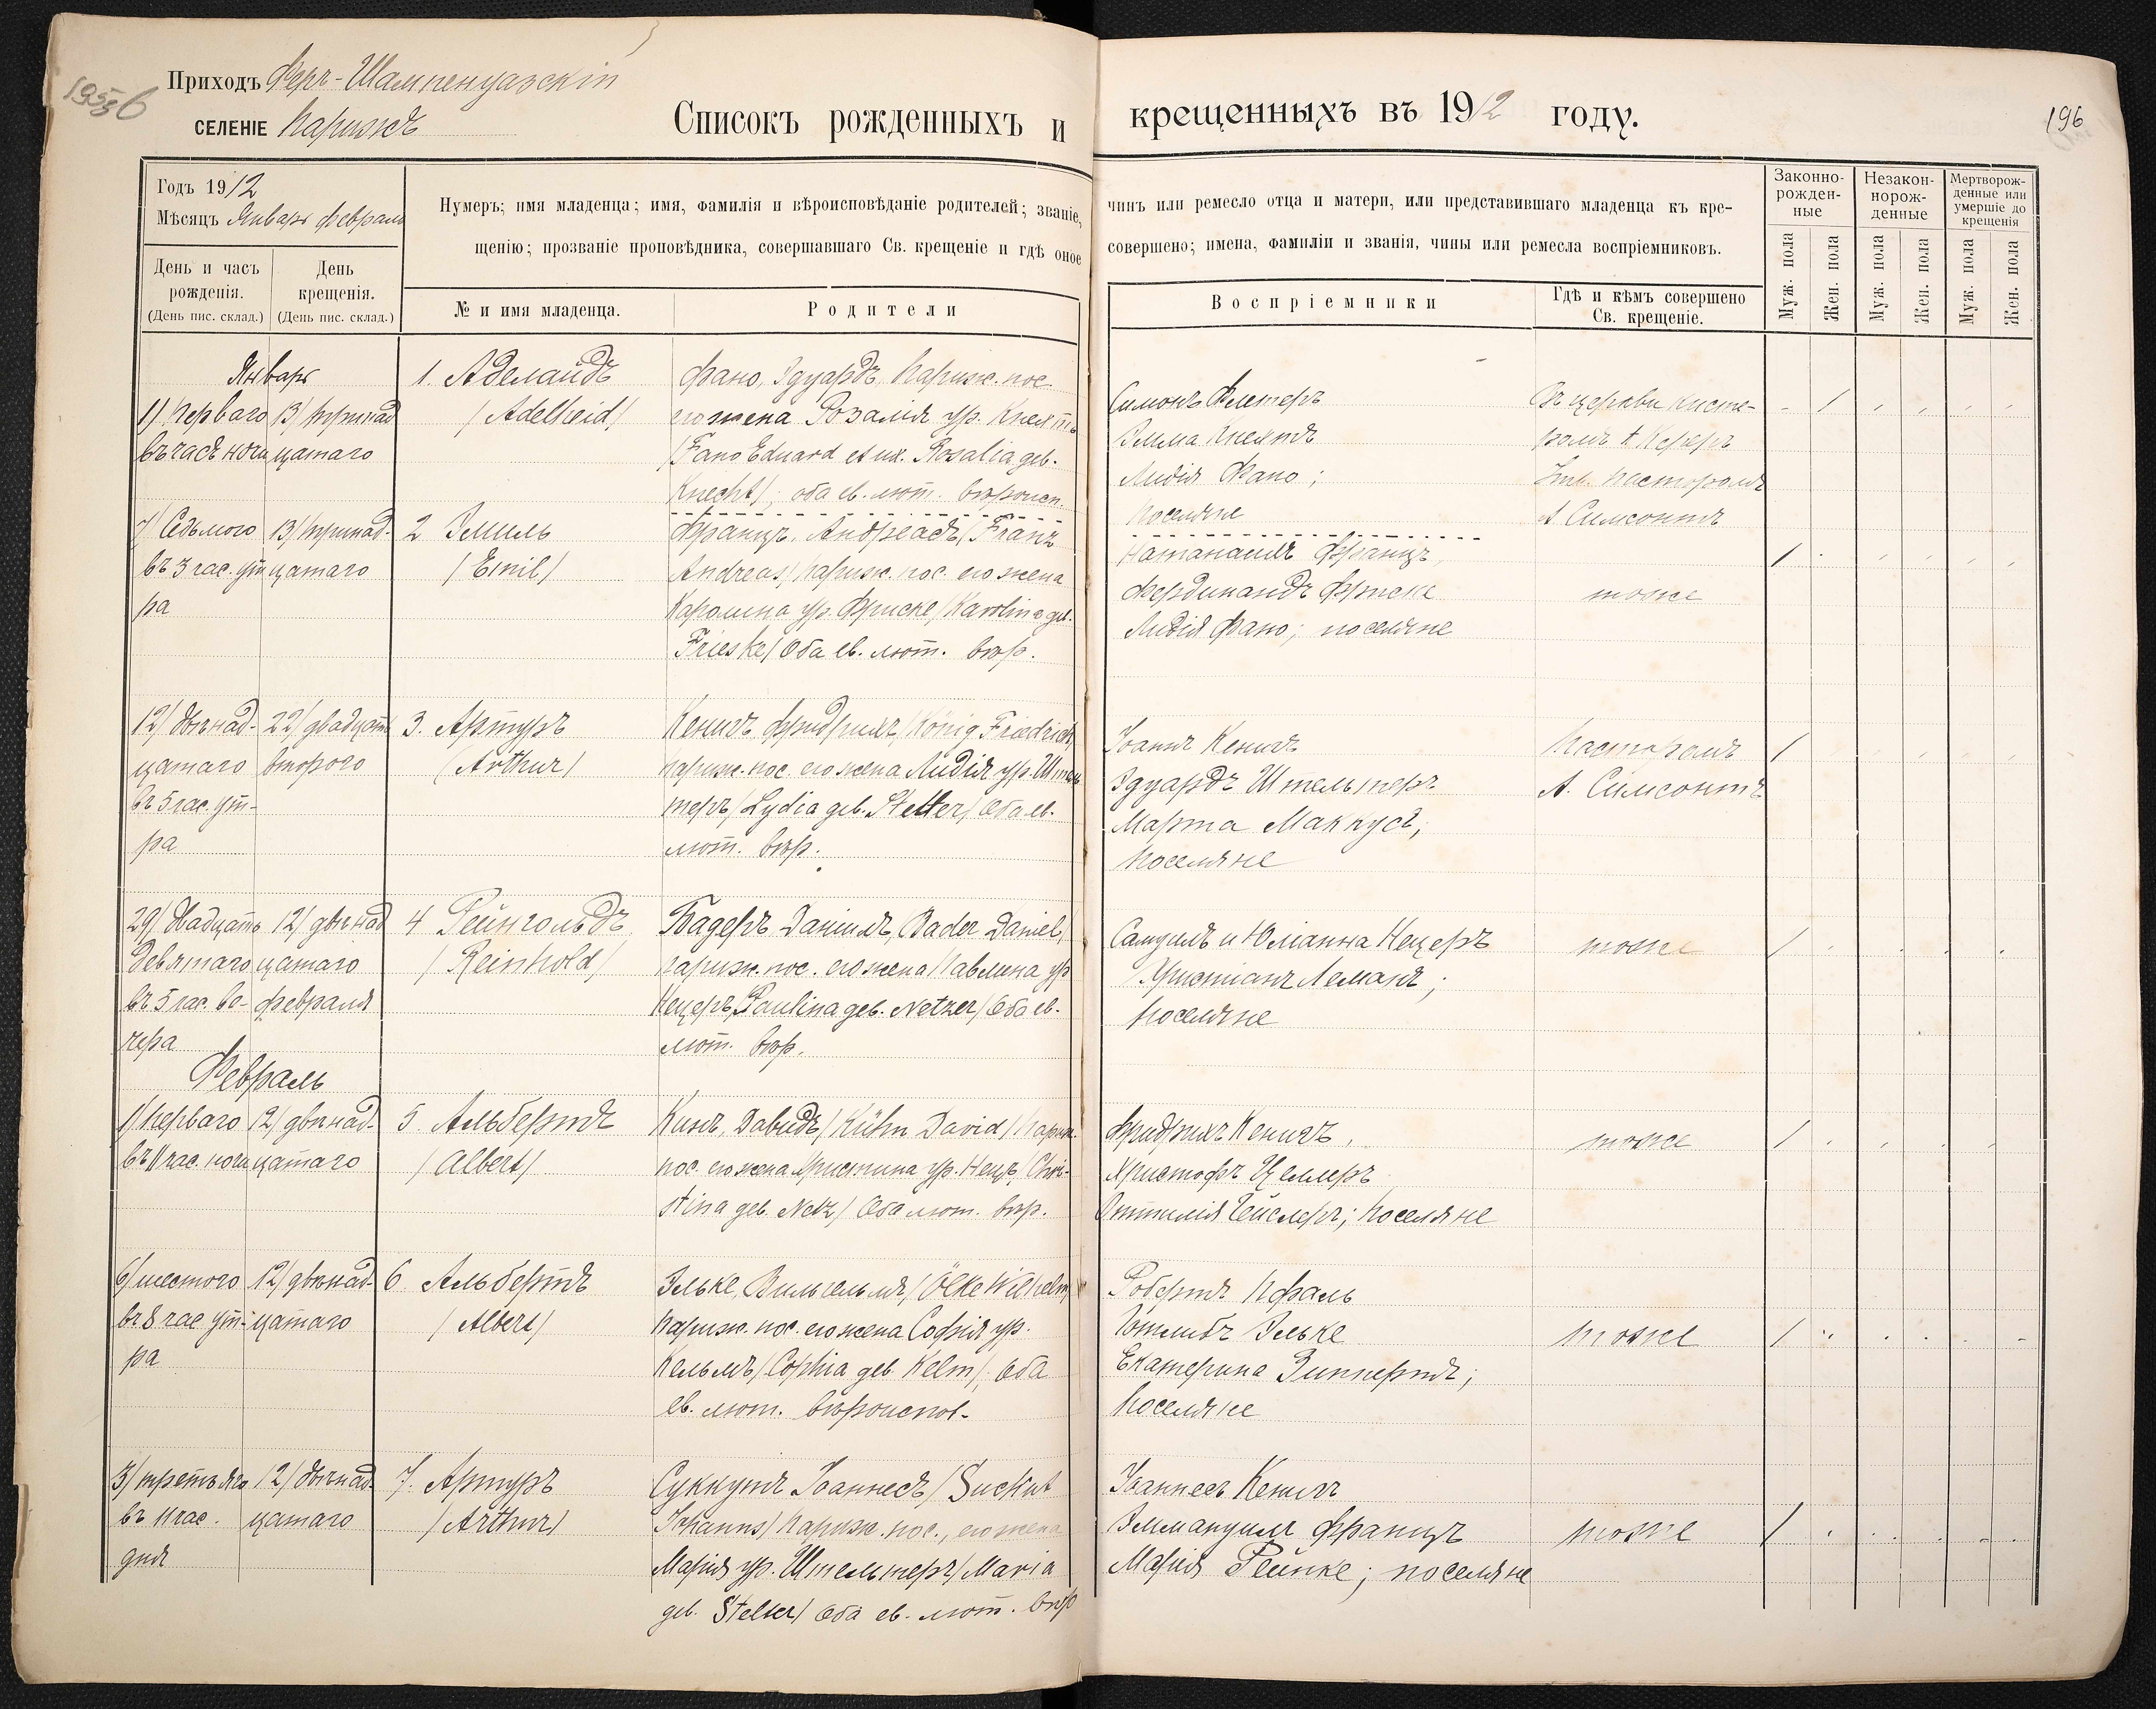 Приходъ Феръ-Шампенуазскій
СЕЛЕНІЕ Парижъ
196
Списокъ рожденныхъ и крещенныхъ въ 1912 году.
Годъ 1912
Мѣсяцъ Январь Февраль
День и часъ рожденія.
(День пис. склад.)
День крещенія.
(День пис. склад.)
Нумеръ; имя младенца; имя, фамилія и вѣроисповѣданіе родителей; званіе, чинъ или ремесло отца и матери, или представившаго младенца къ кре-
щенію; прозваніе проповѣдника, совершавшаго Св. крещеніе и гдѣ оное совершено; имена, фамиліи и званія, чины или ремесла воспріемниковъ.
№ и имя младенца.
Родители
Воспріемники
Гдѣ и кѣмъ совершено
Св. крещеніе.
Законно-
рожден-
ные
Незакон-
норож-
денные
Мертворож-
денные или
умершіе до
крещенія
Муж. пола
Жен. пола
Муж. пола
Жен. пола
Муж. пола
Жен. пола
Январь
1/ Перваго
въ часъ ночи
13/ тринад
цатаго
1. Аделаидъ
/Adelheid/
Фано, Эдуардъ, Париж. пос.
его жена Розалія ур. Кнехтъ
/Fano Eduard et ux. Rosalia geb.
Knecht/; оба ев. лют. вѣроисп.
Симонъ Флетеръ
Эмма Кнехтъ
Лидія Фано;
поселяне
Въ церкви кисте-
ромъ А. Керер
пасторомъ
А. Симсонъ
7/ Седьмого
въ 3 час. ут
ра
13/ тринад-
цатаго
2 Эмиль
/Emil/
Францъ, Андреасъ /Franz
Andreas/ париж. пос. его жена
Каролина ур. Фриске /Karolina geb.
Frieske/ Оба ев. лют. вѣр.
Натанаилъ Францъ,
Фердинандъ Фриске
Лидія Фано; поселяне
тоже
12/ двѣнад-
цатаго
въ 5 час. ут-
ра
22/ двадцать
второго
3. Артуръ
/Arthur/
Кенигъ, Фридрихъ, /König Friedrich/
париж. пос. его жена Лидія ур. Штель
теръ /Lydia geb. Stelter/ Оба ев.
лют. вѣр.
Іоаннъ Кенигъ
Эдуардъ Штельтеръ
Марта Маккусъ,
поселяне
Пасторомъ
А. Симсонъ
29/ двадцать
девятаго
въ 5 час. ве-
чера
12/ двѣнад
цатаго
февраля
4 Рейнгольдъ
/Reinhold/
Бадеръ Даніилъ, /Bader Daniel/
париж. пос. его жена Павлина ур
Нецеръ /Paulina geb. Netzer/ Оба ев.
лют. вѣр.
Самуилъ и Юліанна Нецеръ
Христіанъ Леманъ;
поселяне
тоже
Февраль
1/ перваго
въ 11 час. ночи
12/ двѣнад-
цатаго
5 Альбертъ
/Albert/
Кинъ, Давидъ /Kühn David/ париж.
пос. его жена Христина ур. Нецъ /Chri-
stina geb. Netz/ Оба лют. вѣр.
Фридрихъ Кенигъ,
Христофъ Целлеръ
Оттилія Гейслеръ; поселяне
тоже
6/ шестого
въ 8 час ут-
ра
12/ двѣнад-
цатаго
6. Альбертъ
/Albert/
Эльке, Вильгельмъ, /Ölke Wilhelm/
париж. пос. его жена Софія ур.
Кельмъ /Sophia geb. Kelm/; Оба
ев. лют. вѣроиспов.
Робертъ Пфаль
Готлибъ Эльке
Екатерина Зиппертъ;
поселяне
тоже
3/ третьяго
въ 11 час.
дня
12/ двѣнад-
цатаго
7. Артуръ
/Arthur/
Суккутъ Іоаннесъ /Suckut
Johannes/ Париж. пос., его жена
Марія ур. Штельтеръ /Maria
geb. Stelter/ Оба ев. лют. вѣр
Іоаннесъ Кенигъ
Эммануилъ Францъ
Марія Рейнке; поселяне
тоже